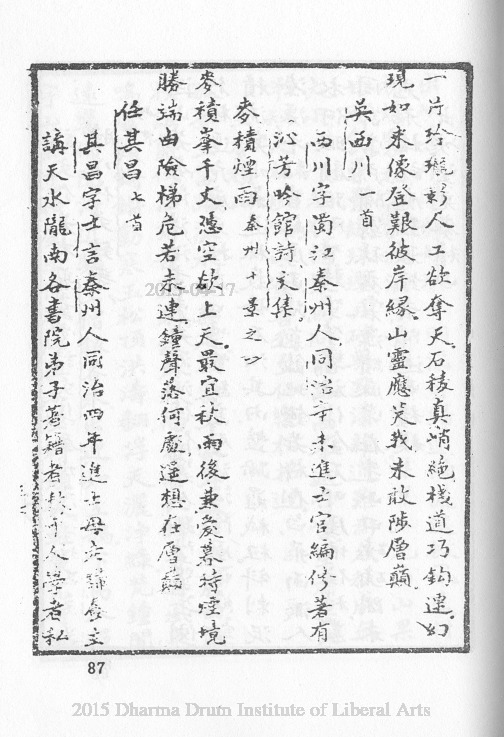 一片玲瓏影人工欲奪天石稜真峭絕棧道巧鈎連幻
現如來像登艱彼岸緣山靈應笑我未敢陟層巔
吳西川一首
西川字蜀江秦州人同治辛未進士官編修著有
沁芳吟館詩文集
麥積煙雨 秦州十景之一
麥積峯千丈憑空欲上天最宜秋雨後兼愛暮時煙境
勝端由險梯危若未連鐘聲落何處遙想在層巔
任其昌七首
其昌字士言秦州人同治四年進士母老歸養主
講天水隴南各書院弟子著籍者數千人學者私
87
2015-04-17
2015 Dharma Drum Institute of Liberal Arts